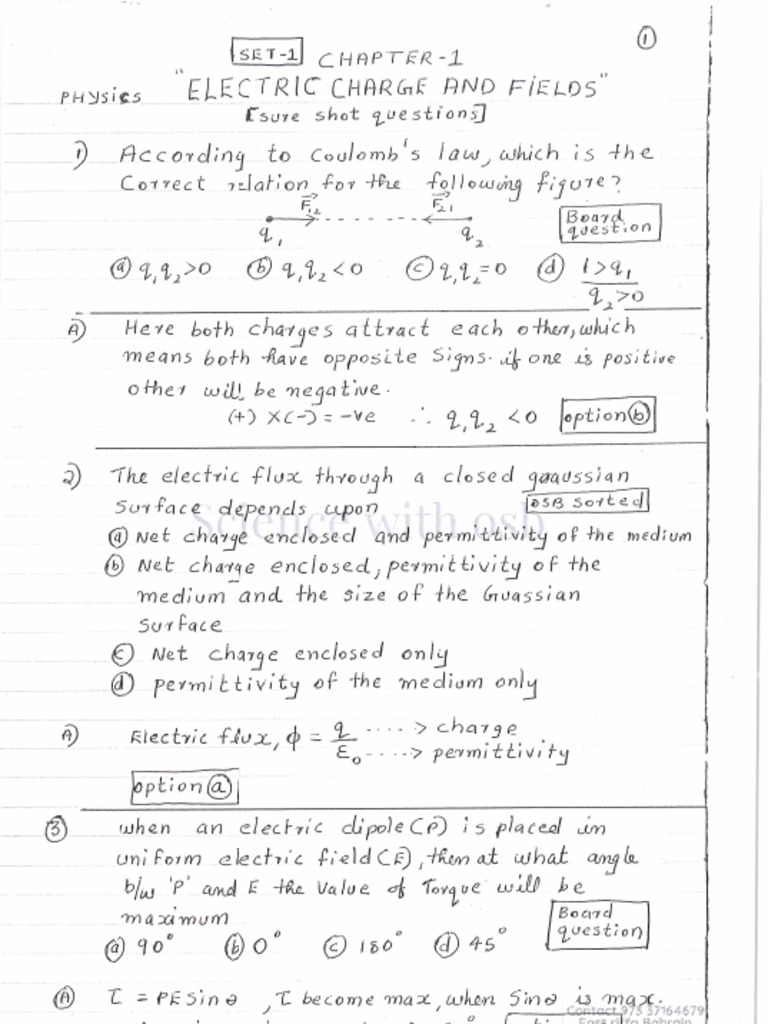 ①
SET-1 CHAPTER-1
PHYsics "ELECTRIC CHARGE AND FiELDS"
[sure shot questions]
1) According to Coulomb's law, which is the
Correct relation for the following figure?
F₁₂ F₂₁
q₁ q₂
Board question
ⓐ q₁q₂>0 ⓑ q₁q₂<0 ⓒ q₁q₂=0 ⓓ 1>q₁/q₂>0
A) Here both charges attract each other, which
means both have opposite signs. if one is positive
other will be negative.
(+) X(-) = -ve ∴ q₁q₂ <0 option ⓑ
2) The electric flux through a closed gaussian
surface depends upon OSB Sorted
Science with osb
ⓐ Net charge enclosed and permittivity of the medium
ⓑ Net charge enclosed, permittivity of the
medium and the size of the Guassian
surface
ⓒ Net charge enclosed only
ⓓ permittivity of the medium only
A) Electric flux, ϕ = q ....> charge
ε₀ ....> permittivity
option ⓐ
③ when an electric dipole (P) is placed in
uniform electric field (E), then at what angle
b/w 'P' and E the value of Torque will be
maximum
Board question
ⓐ 90° ⓑ 0° ⓒ 180° ⓓ 45°
Ⓐ τ = PE Sinθ , τ become max, when Sinθ is max.
Contact 973 37164679
East riffa Bahrain